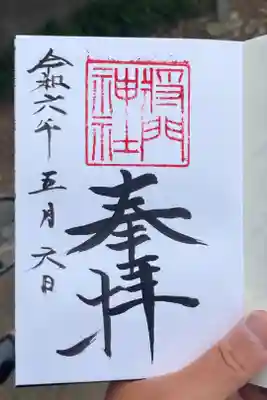 奉拝
将門
神社
令和六年五月六日